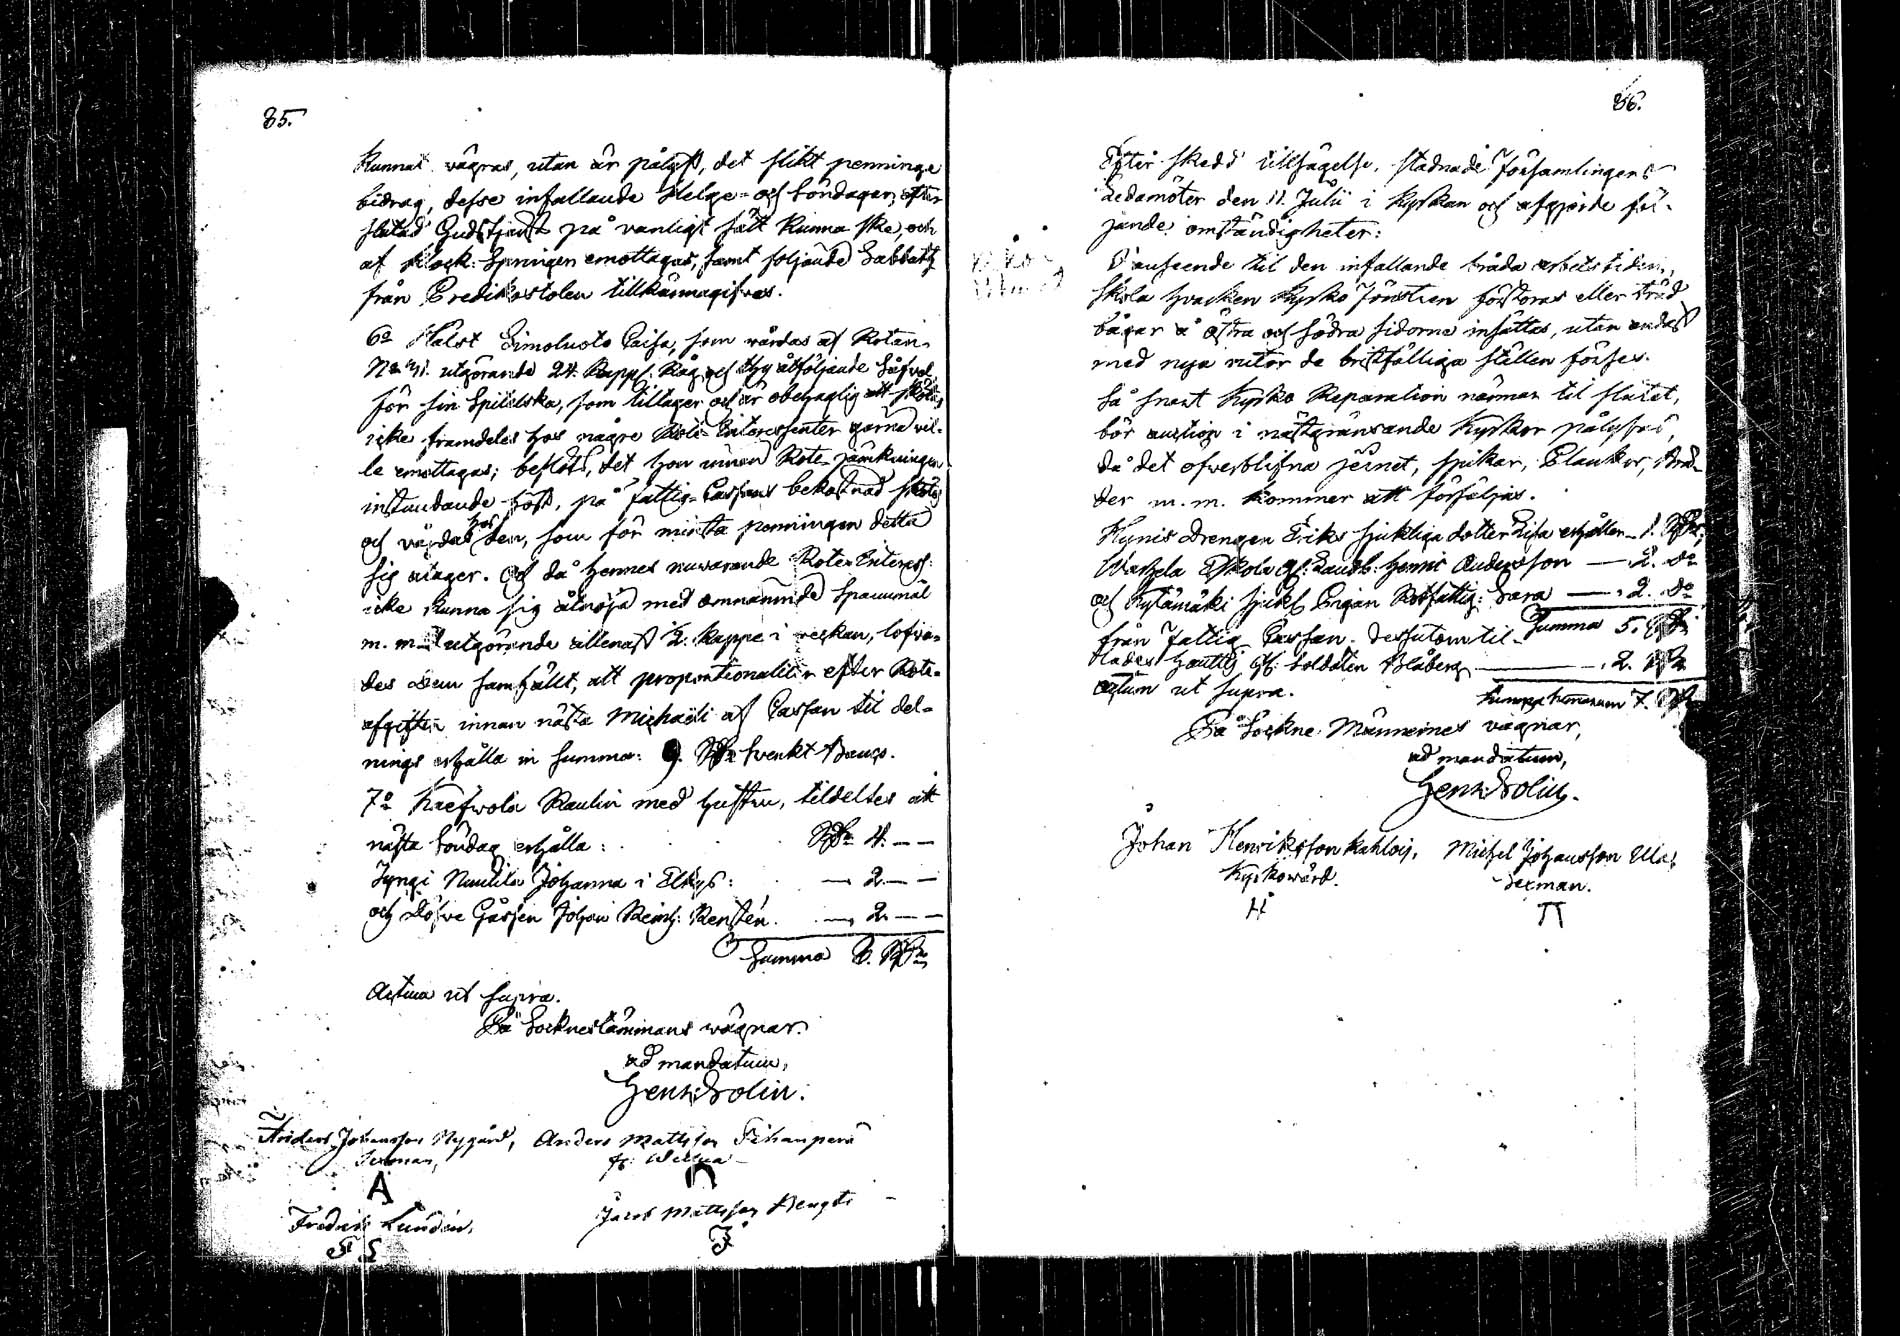 85.
kunnat vägras, utan är pålyst, det slikt penninge
bidrag, desse infallande Helge- och Söndagar, efter
slutad Gudstjenst på vanligt sätt kunna ske, och
af Klock: Spruigen emottagas, samt foljande Sabbath
från Predikostolen tillkännagifvas.
6o Halst Simoluoto Caisa, som vårdas af Rotan
No utgörande 24. Kapp. Råg, och thy åtföljande Säfvel
för sin Spitelska, som tiltager och är obehaglig att skötas
icke framdeles hos någre Rote-Interessenter gerna vil-
le emottagas; beslöts, det hon innan Rote-jämkningen
instundande höst, på Fattig-Cassans bekostnad skötes
och vårdas hos den, som för minsta penningen detta
sig åtager. Och då hennes nuvarande Rote-Interess:
icke kunna sig åtnöja med omnämnde Spannmål
m. m. utgörande allenast ½ kappe i veckan, lofva-
des dem samfält, att proportionaliter efter Rote-
afgiften innan nästa Michaëli af Cassan til del-
nings erhålla in summa: 9. Rdr Svenkt Banco.
7o Kaefwola Raulin med hustru, tildeltes att
nästa Söndag erhålla: Rdr 4. — —
Jyngi Nuutila Johanna i Elkys: — 2. — —
och döfve Gåssen Johan Reinh: Renstén. — 2. — —
Summa 8. Rdr
Actum ut supra.
På Socknestämmans wägnar.
ad mandatum,
Henr: Solin.
Anders Johansson Nygård, Anders Mattsson Pihanperä
Sexman,
A
Fredrik Lundén, Jacob Mattsson Bengts
F L J
86.
Efter skedd tillsägelse, stadnade Församlingens
Ledamöter den 11. Julii i Kyrkan och afgjorde föl-
jande omständigheter:
I anseende til den infallande bråda arbetstiden,
skola hvarken Kyrko Fönstren förstoras eller tråd
bågar å östra och södra sidorna insättas, utan endast
med nya rutor de bristfälliga ställen förses.
Så snart Kyrko Reparation närmar til slutet,
bör auction i nästgränsande Kyrkor pålysas,
då det ofverblifna jernet, spikar, Plankor, Bräd-
der m. m. kommer att försäljas.
Hynis Drengen Eriks sjukliga dotter Lisa erhåller — 1. Rdr,
Wachela Eskola Henric Andersson — 2. do
och Kytämäki Pigan Rotfattig: Sara — 2. do
från Fattig Cassan. Dessutom til- Summa 5. Rdr
lades Soldaten Blåberg — 2. Rdr
actum ut supra. Summa summarum 7. Rdr
På Sockne Männernes vägnar,
ad mandatum,
Henr: Solin.
Johan Henriksson Kahlois, Michel Johansson Ulas
Kyrkovärd. Sexman.